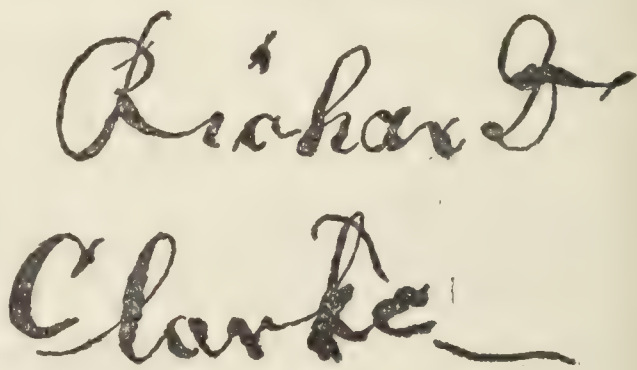 Richard
Clarke